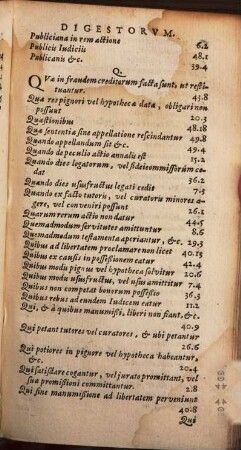 DIGESTORVM.
Publiciana in rem actione 6.2
Publicis Iudiciis 48.1
Publicanis &c. 39.4
Q.
QVæ in fraudem creditorum facta sunt, ut resti-
tuantur. 43.8
Quæ res pignori vel hypothecæ data, obligari non
possunt 20.3
Quæstionibus 48.18
Quæ sententia sine appellatione rescindantur 49.8
Quando appellandum sit &c. 49.4
Quando de peculio actio annalis est 15.2
Quando dies legatorum, vel fideicommissorum ce-
dat 36.2
Quando dies ususfructus legati cedit 7.3
Quando ex facto tutoris, vel curatoris minores a-
gere, vel conveniri possunt 26.1
Quarum rerum actio non datur 44.5
Quemadmodum servitutes amittuntur 8.6
Quemadmodum testamenta aperiantur, &c. 29.3
Quibus ad libertatem proclamare non licet 40.13
Quibus ex causis in possessionem eatur 42.4
Quibus modis pignus vel hypotheca solvitur 20.6
Quibus modis ususfructus, vel usus amittitur 7.4
Quibus non competat bonorum possessio 36.3
Quibus rebus ad eundem Iudicem eatur 11.2
Qui, & à quibus manumissi, liberi non fiant, &c.
40.9
Qui petant tutores vel curatores, & ubi petantur
26.6
Qui potiores in pignore vel hypotheca habeantur,
&c. 20.4
Qui satisdare cogantur, vel jurato promittant, vel
suæ promissioni committantur. 2.8
Qui sine manumissione ad libertatem perveniunt
40.8
Qui